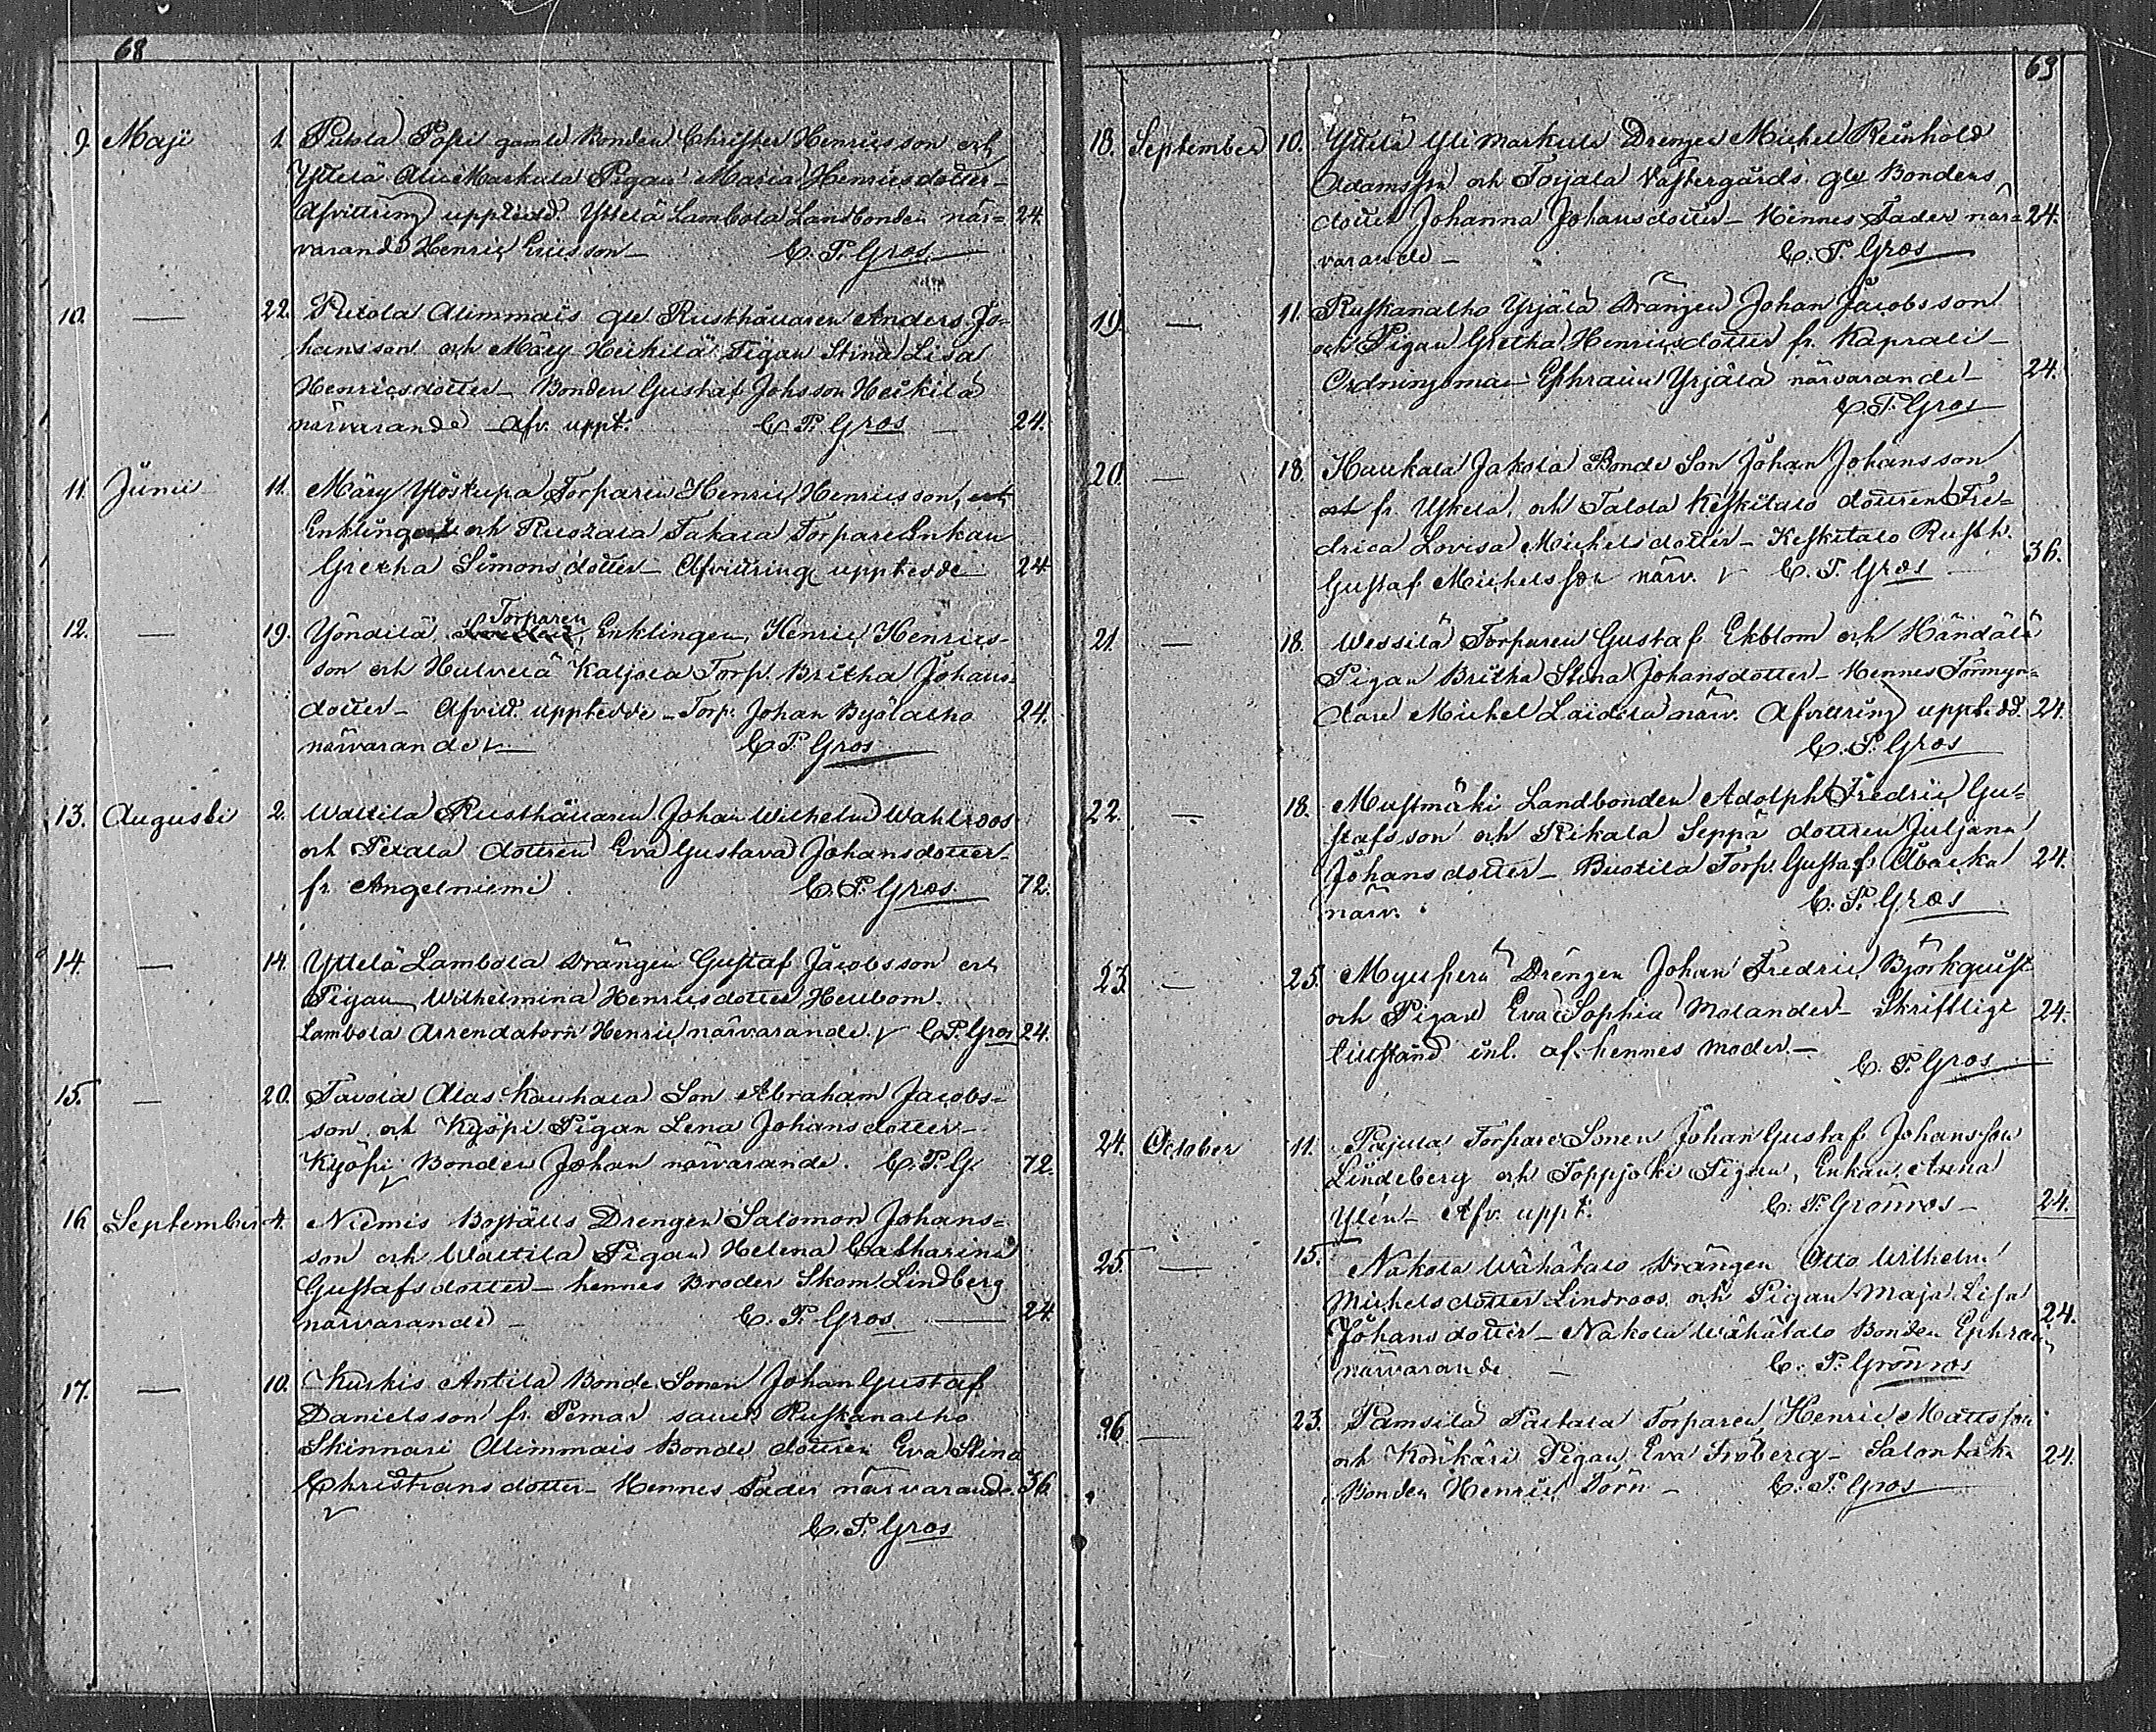 68
9. Maji 1. Pukola Possi gamle Bonden Christer Henricsson och
Yttelä Ali Markula Pigan Maria Henricsdotter –
Afvittring upptedd. Yttelä Lambola Landbonden när= 24.
varande Henric Ericsson – C. P. Gros
10. — 22. Pukola Alimmais gle Rusthållaren Anders Jo=
hansson och Märy Heikilä Pigan Stina Lisa
Henricsdotter – Bonden Gustaf Johsson Heikilä
närvarande – Afv. uppt. C. P. Gros — 24.
11. Junii 11. Märy Ylöskupa Torparen Henric Henricsson, och
Enklingen och Ruozala Takala Torpare Enkan
Gretha Simonsdotter – Afvittring upptedde 24
12. — 19. Yöndilä Torparen Enklingen, Henric Henrics-
son och Hulvela Kaljola Torp. Britha Johans=
dotter – Afvitt. upptedde – Torp. Johan Byölätho 24.
närvarande – C. P. Gros
13. Augusti 2. Waltila Rusthållaren Johan Wilhelm Wahlroos
och Pexala dottren Eva Gustava Johansdotter –
fr. Angelniemi. C. P. Gros 72.
14. — 14. Yttelä Lambola Drängen Gustaf Jacobsson och
Pigan Wilhelmina Henricsdotter Hellbom.
Lambola Arrendatorn Henric närvarande. C. P. Gros 24.
15. — 20. Tavola Alas Kauhala Son Abraham Jacobs=
son och Kyöpi Pigan Lena Johansdotter –
Kyöpi Bonden Johan närvarande. C. P. G 72.
16 September 4. Niemis Boställs Drengen Salomon Johans=
son och Waltila Pigan Helena Catharina
Gustafsdotter – hennes Broder Skom. Lindberg
närvarande – C. P. Gros — 24.
17. — 10. Kuskis Antila Bonde Sonen Johan Gustaf
Danielsson fr. Pemar samt Ruskanalho
Skinnari Alimmais Bonde dottren Eva Stina
Christiansdotter – Hennes Fader närvarande. 36
C. P. Gros
69
18. September 10. Yttelä Yli Markula Drengen Michel Reinhold
Adamsson och Toijala Västergårds gle Bondens
dotter Johanna Johansdotter – Hennes Fader när= 24.
varande – C. P. Gros
19. — 11. Ruskanalho Yrjälä Drängen Johan Jacobsson
och Pigan Gretha Henricsdotter fr. Kaprali –
Ordningsman Ephraim Yrjälä närvarande – 24.
C. P. Gros
20. — 18. Haukala Jakola Bonde Son Johan Johansson
och fr. Uskela, och Talola Keskitalo dottren Fre=
drica Lovisa Michelsdotter – Keskitalo Rusth. 36.
Gustaf Michelsson närv. C. P. Gros
21. — 18. Wessilä Torparen Gustaf Ekblom och Händälä
Pigan Britha Stina Johansdotter – Hennes Förmyn=
dare Michel Laidila närv. Afvittring upptedd. 24.
C. P. Gros
22. — 18. Mustmäki Landbonden Adolph Fredric Gu=
stafsson och Rikala Seppä dottren Juljana
Johansdotter – Buotila Torp. Gustaf Abacka 24.
närv. C. P. Gros
23. — 25. Drengen Johan Fredric Björkquist
och Pigan Eva Sophia Molander – Skriftligt 24.
tillstånd inl. af hennes moder. –
C. P. Gros
24. October 11. Pajula Torpare Sonen Johan Gustaf Johansson
Lindeberg och Toppjoki Pigan, Enkan Anna
Ylén – Afv. uppt. C. P. Grönros – 24.
25. — 15. Nakola Wähätalo Drängen Otto Wilhelm
Michelsdotter Lindroos och Pigan Maja Lisa 24.
Johansdotter – Nakola Wähätalo Bonden Ephraim
närvarande – C. P. Grönros
26 — 23. Pamsila Partala Torparen Henric Mattsson
och Könkäri Pigan Eva Froberg – 24.
Bonden Henric Törn – C. P. Gros